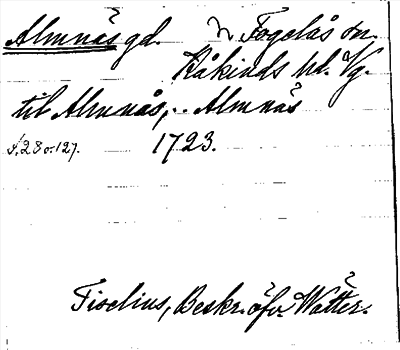 Almnäs gd. N Fogelås sn.
Kåkinds hd. Vg.
til Almnäs, .. Almnäs
s. 28 o. 127. 1723.
Tiselius, Beskr. öfv. Wätter.